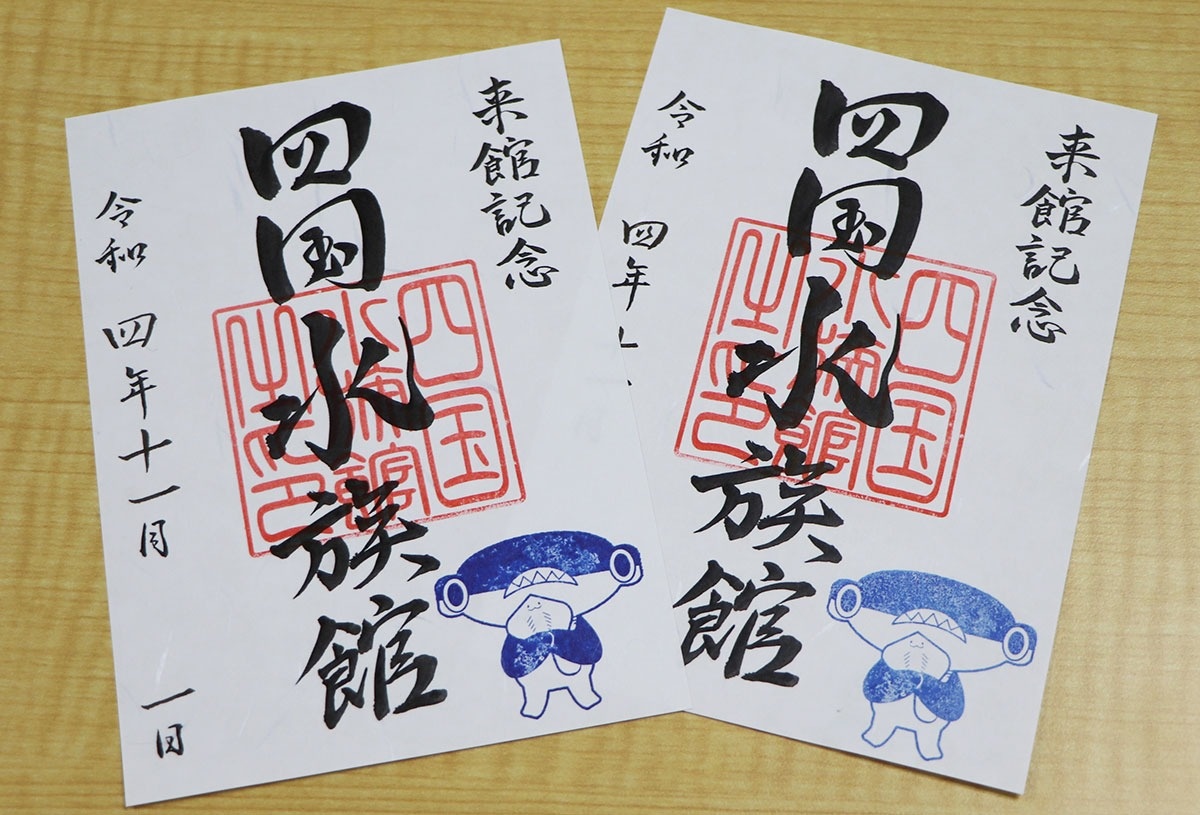 来館記念
四国水族館
四国
水族館
之印
令和 四年十一月 一日
来館記念
四国水族館
四国
水族館
之印
令和 四年十